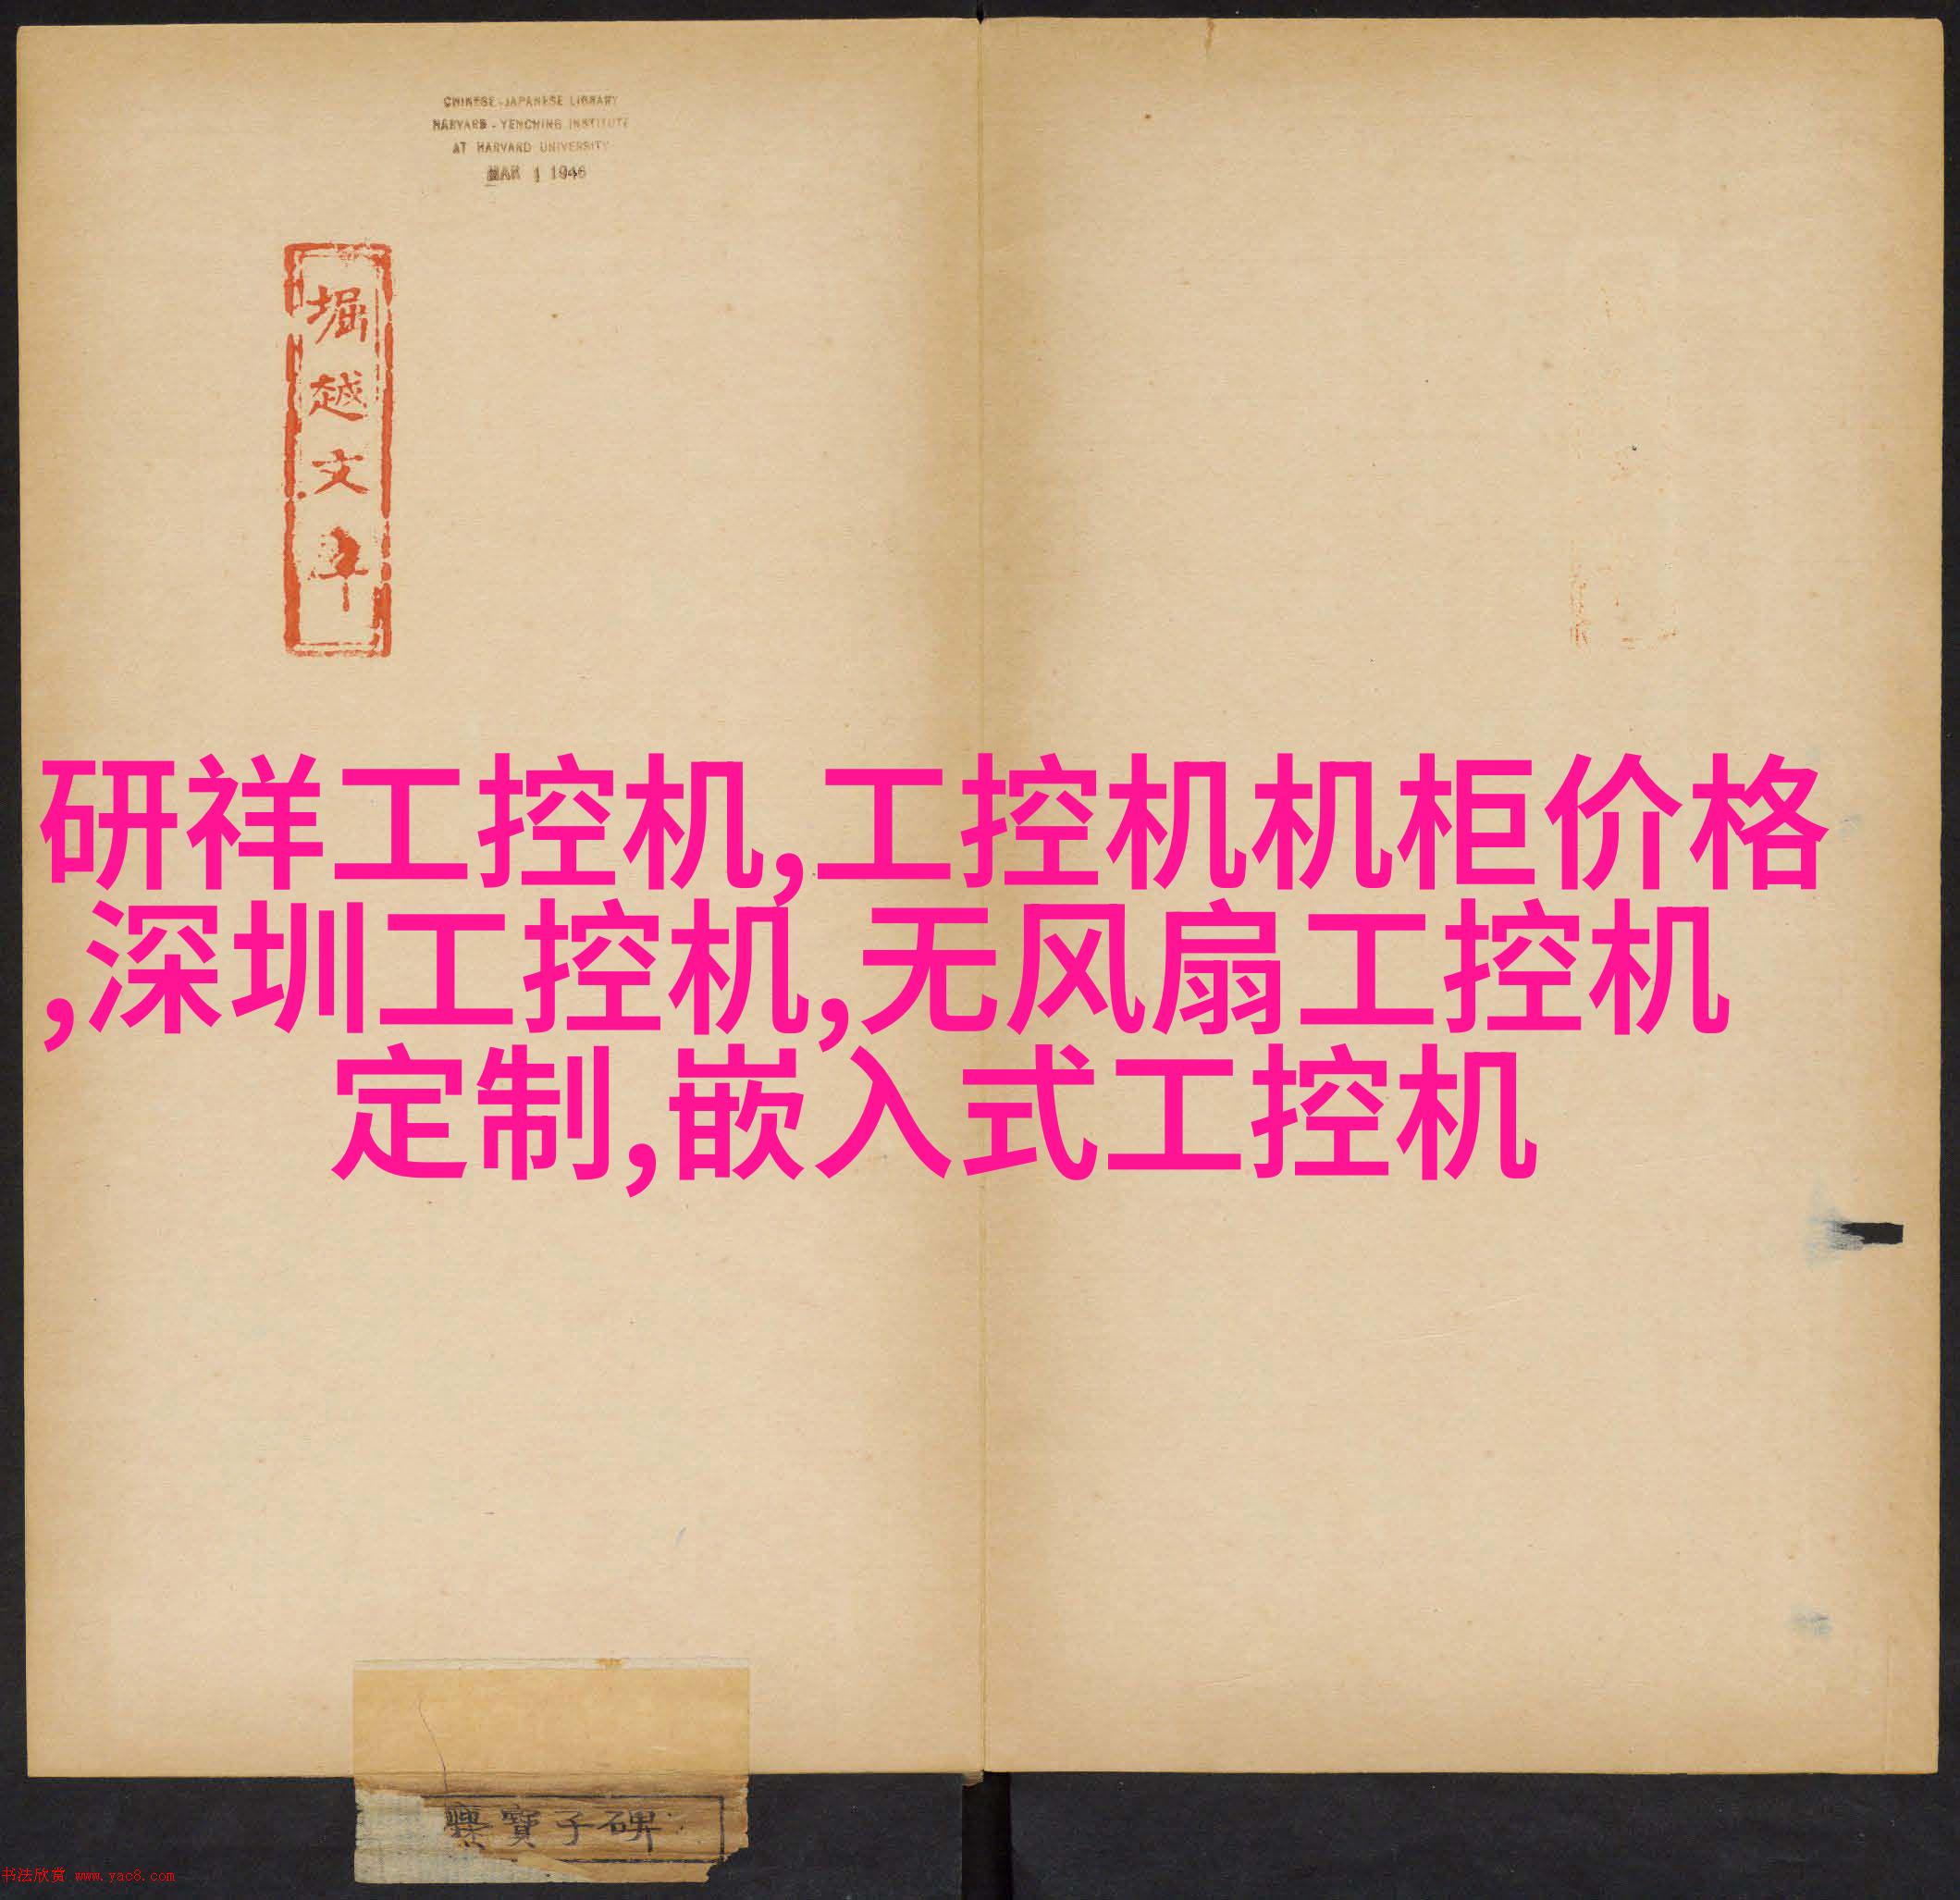 CHINESE-JAPANESE LIBRARY
HARVARD-YENCHING INSTITUTE
AT HARVARD UNIVERSITY
MAR 1 1946
堀越文
研祥工控机,工控机机柜价格
,深圳工控机,无风扇工控机
定制,嵌入式工控机
爨寶子碑
书法欣赏 www.yac8.com